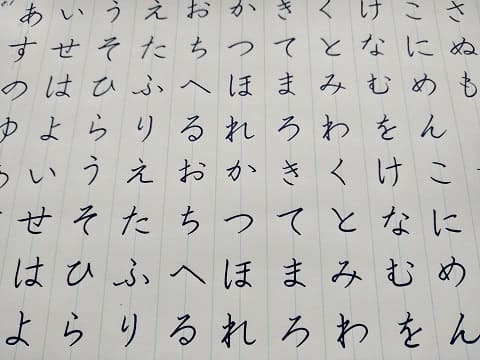 あいうえおかきくけこさ
すせそたちつてとなにぬ
のはひふへほまみむめも
ゆよらりるれろわをん
いうえおかきくけこ
せそたちつてとなに
はひふへほまみむめ
よらりるれろわをん